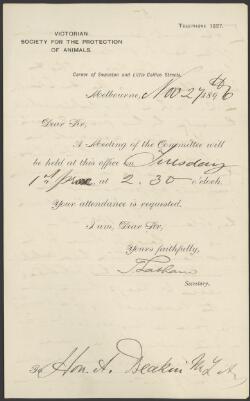 TELEPHONE 1227.
VICTORIAN
SOCIETY FOR THE PROTECTION
OF ANIMALS.
Corner of Swanston and Little Collins Streets,
Melbourne, Nov 27th 1896
Dear Sir,
A Meeting of the Committee will
be held at this office on Tuesday
1st at 2.30 o'clock.
Your attendance is requested.
I am, Dear Sir,
Yours faithfully,
Latham
Secretary.
To Hon. A. Deakin M.L.A.